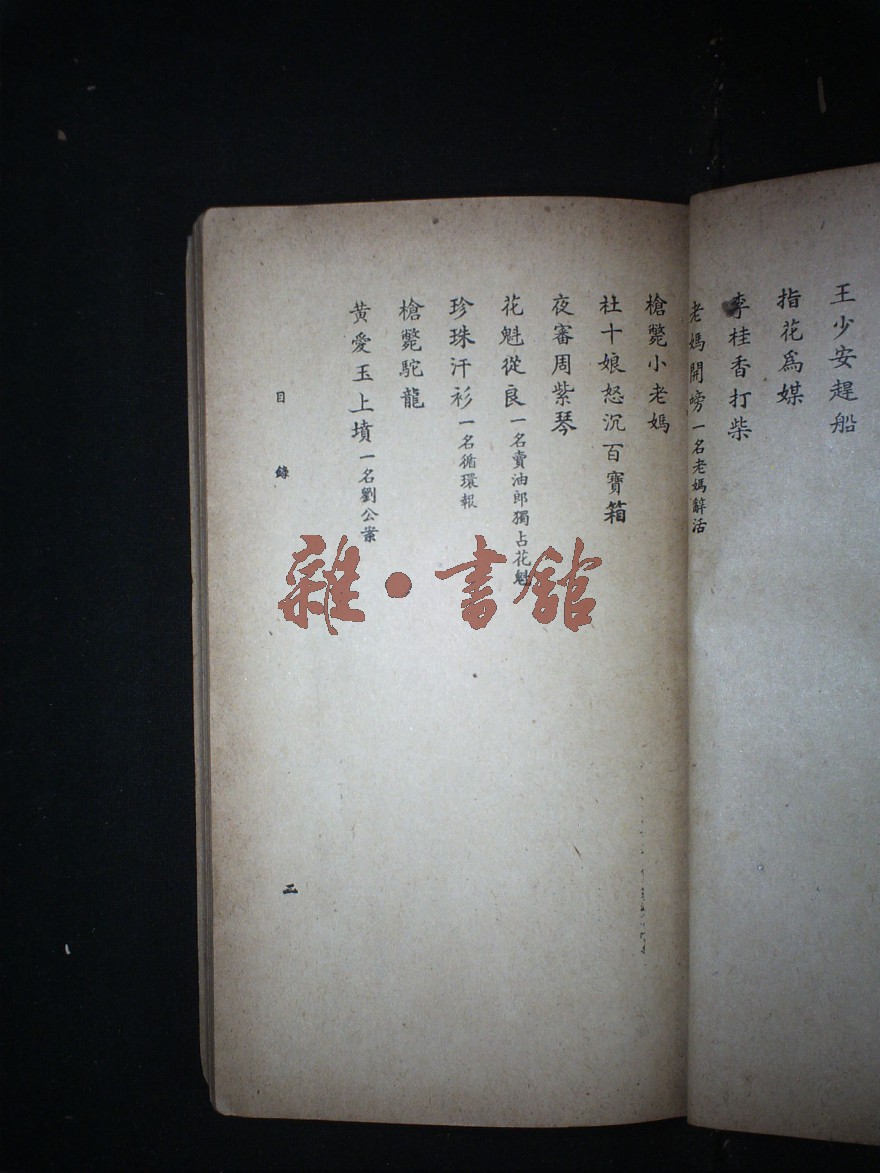 王少安趕船
指花爲媒
李桂香打柴
老媽開嗙 一名老媽辭活
槍斃小老媽
杜十娘怒沉百寶箱
夜審周紫琴
花魁從良 一名賣油郎獨占花魁
珍珠汗衫 一名循環報
槍斃駝龍
黃愛玉上墳 一名劉公案
目錄
二
雜·書館